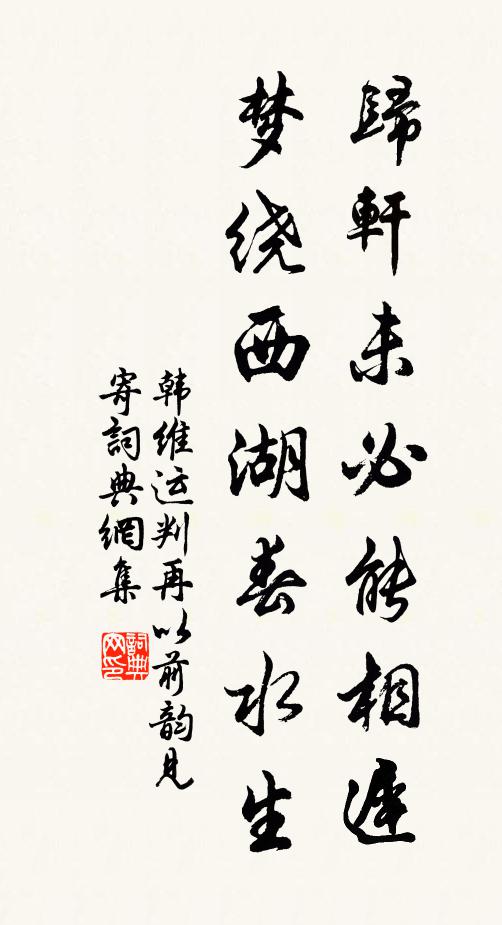 歸軒未必能相遲
梦绕西湖春水生
韩维运判再以前韵见
寄詞典網集
詞典网印